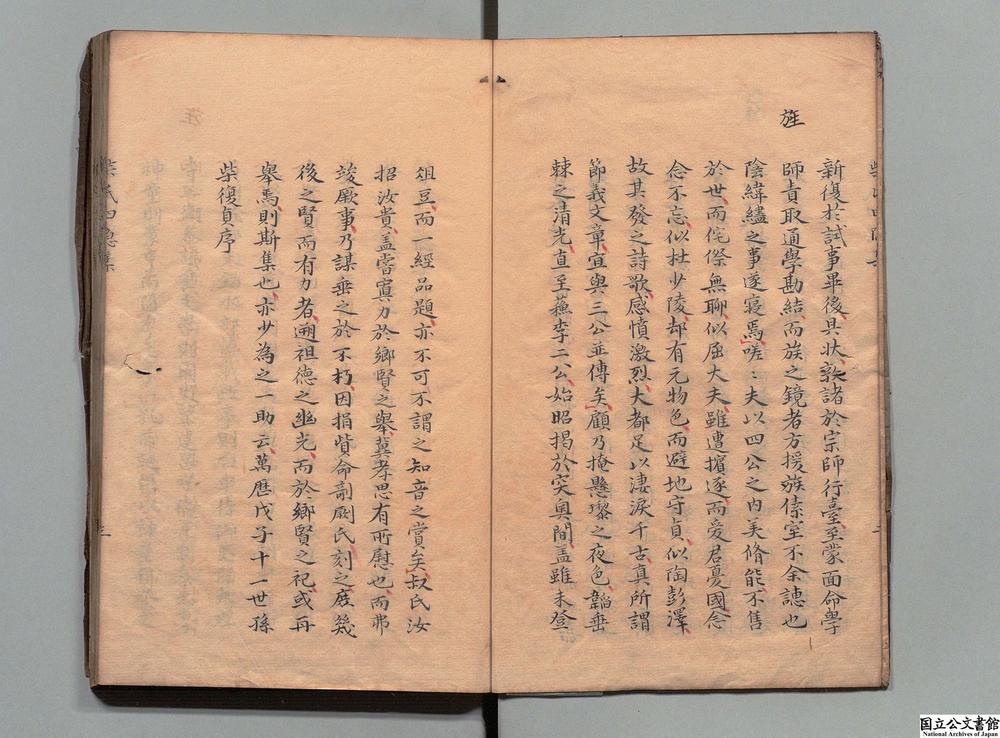 旌
新復於試事畢後具状敦諸於宗師行臺至蒙面命學
師責取通學勘結而族之鏡者方援蔟傃室不余譓也
陰緯繣之事遂寢焉嗟〻夫以四公之内美脩能不售
於世而侘傺無聊似屈大夫雖遭擯逐而爱君憂國念
念不忘似杜少陵却有元物色而避地守貞似陶彭澤
故其發之詩歌感憤激烈大都足以凄淚千古真所謂
節義文章宜與三公並傳矣顧乃掩懸璨之夜色韜垂
棘之清光直至蕪李二公始昭揭於突奥間盖雖未登
俎豆而一經品題亦不可不謂之知音之賞矣叔氏汝
招汝貴盖嘗寘力於鄉賢之舉冀孝思有所慰也而弗
竣厥事乃謀垂之於不朽因捐貲命剞劂氏刻之庶幾
後之賢而有力者遡祖德之幽光而於鄉賢之祀或再
舉焉則斯集也亦少為之一助云萬歷戊子十一世孫
柴復貞序
柴氏四隱集
三
国立公文書館
National Archives of Japan